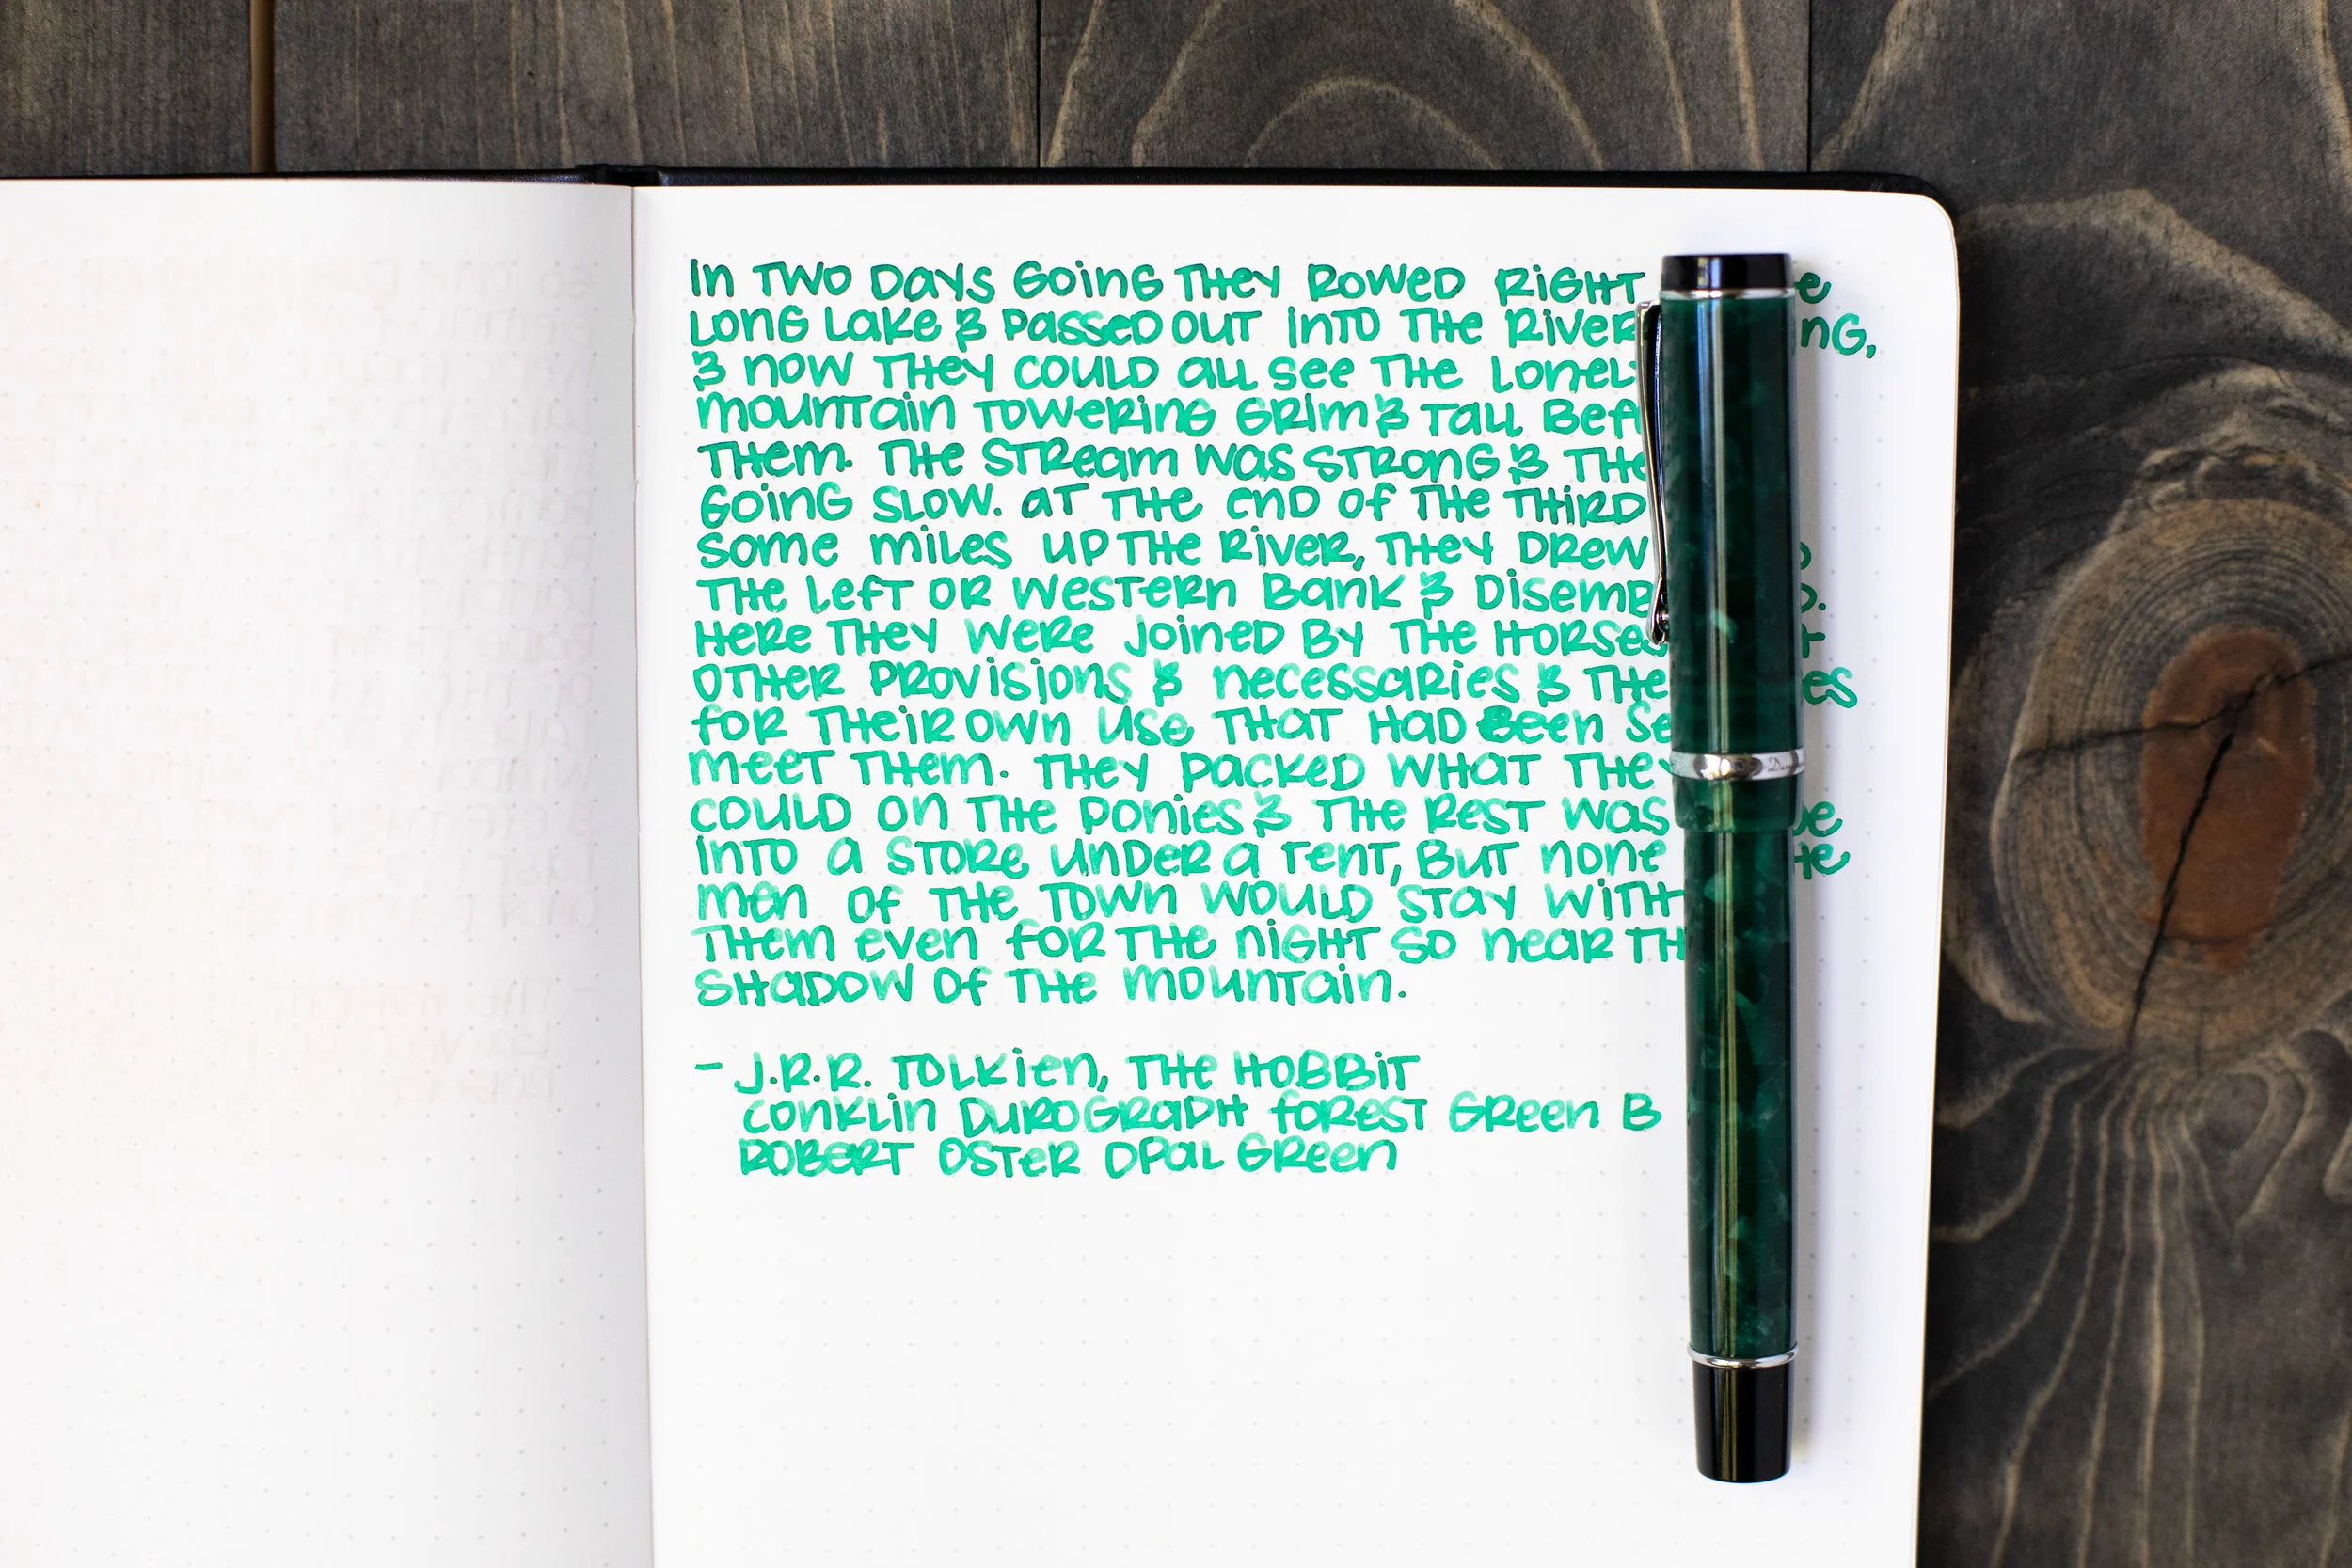 In two days going they rowed right
Long Lake & passed out into the River
& now they could all see the
mountain towering grim & tall
them. The stream was strong &
going slow. At the end of the third
some miles up the river, they drew
the left or western bank &
Here they were joined by the horses
other provisions & necessaries &
for their own use that had been
meet them. They packed what they
could on the ponies & the rest was
into a store under a tent, but none
men of the town would stay with
them even for the night so near
shadow of the mountain.
- J.R.R. Tolkien, The Hobbit
Conklin Durograph Forest Green B
Robert Oster Opal Green